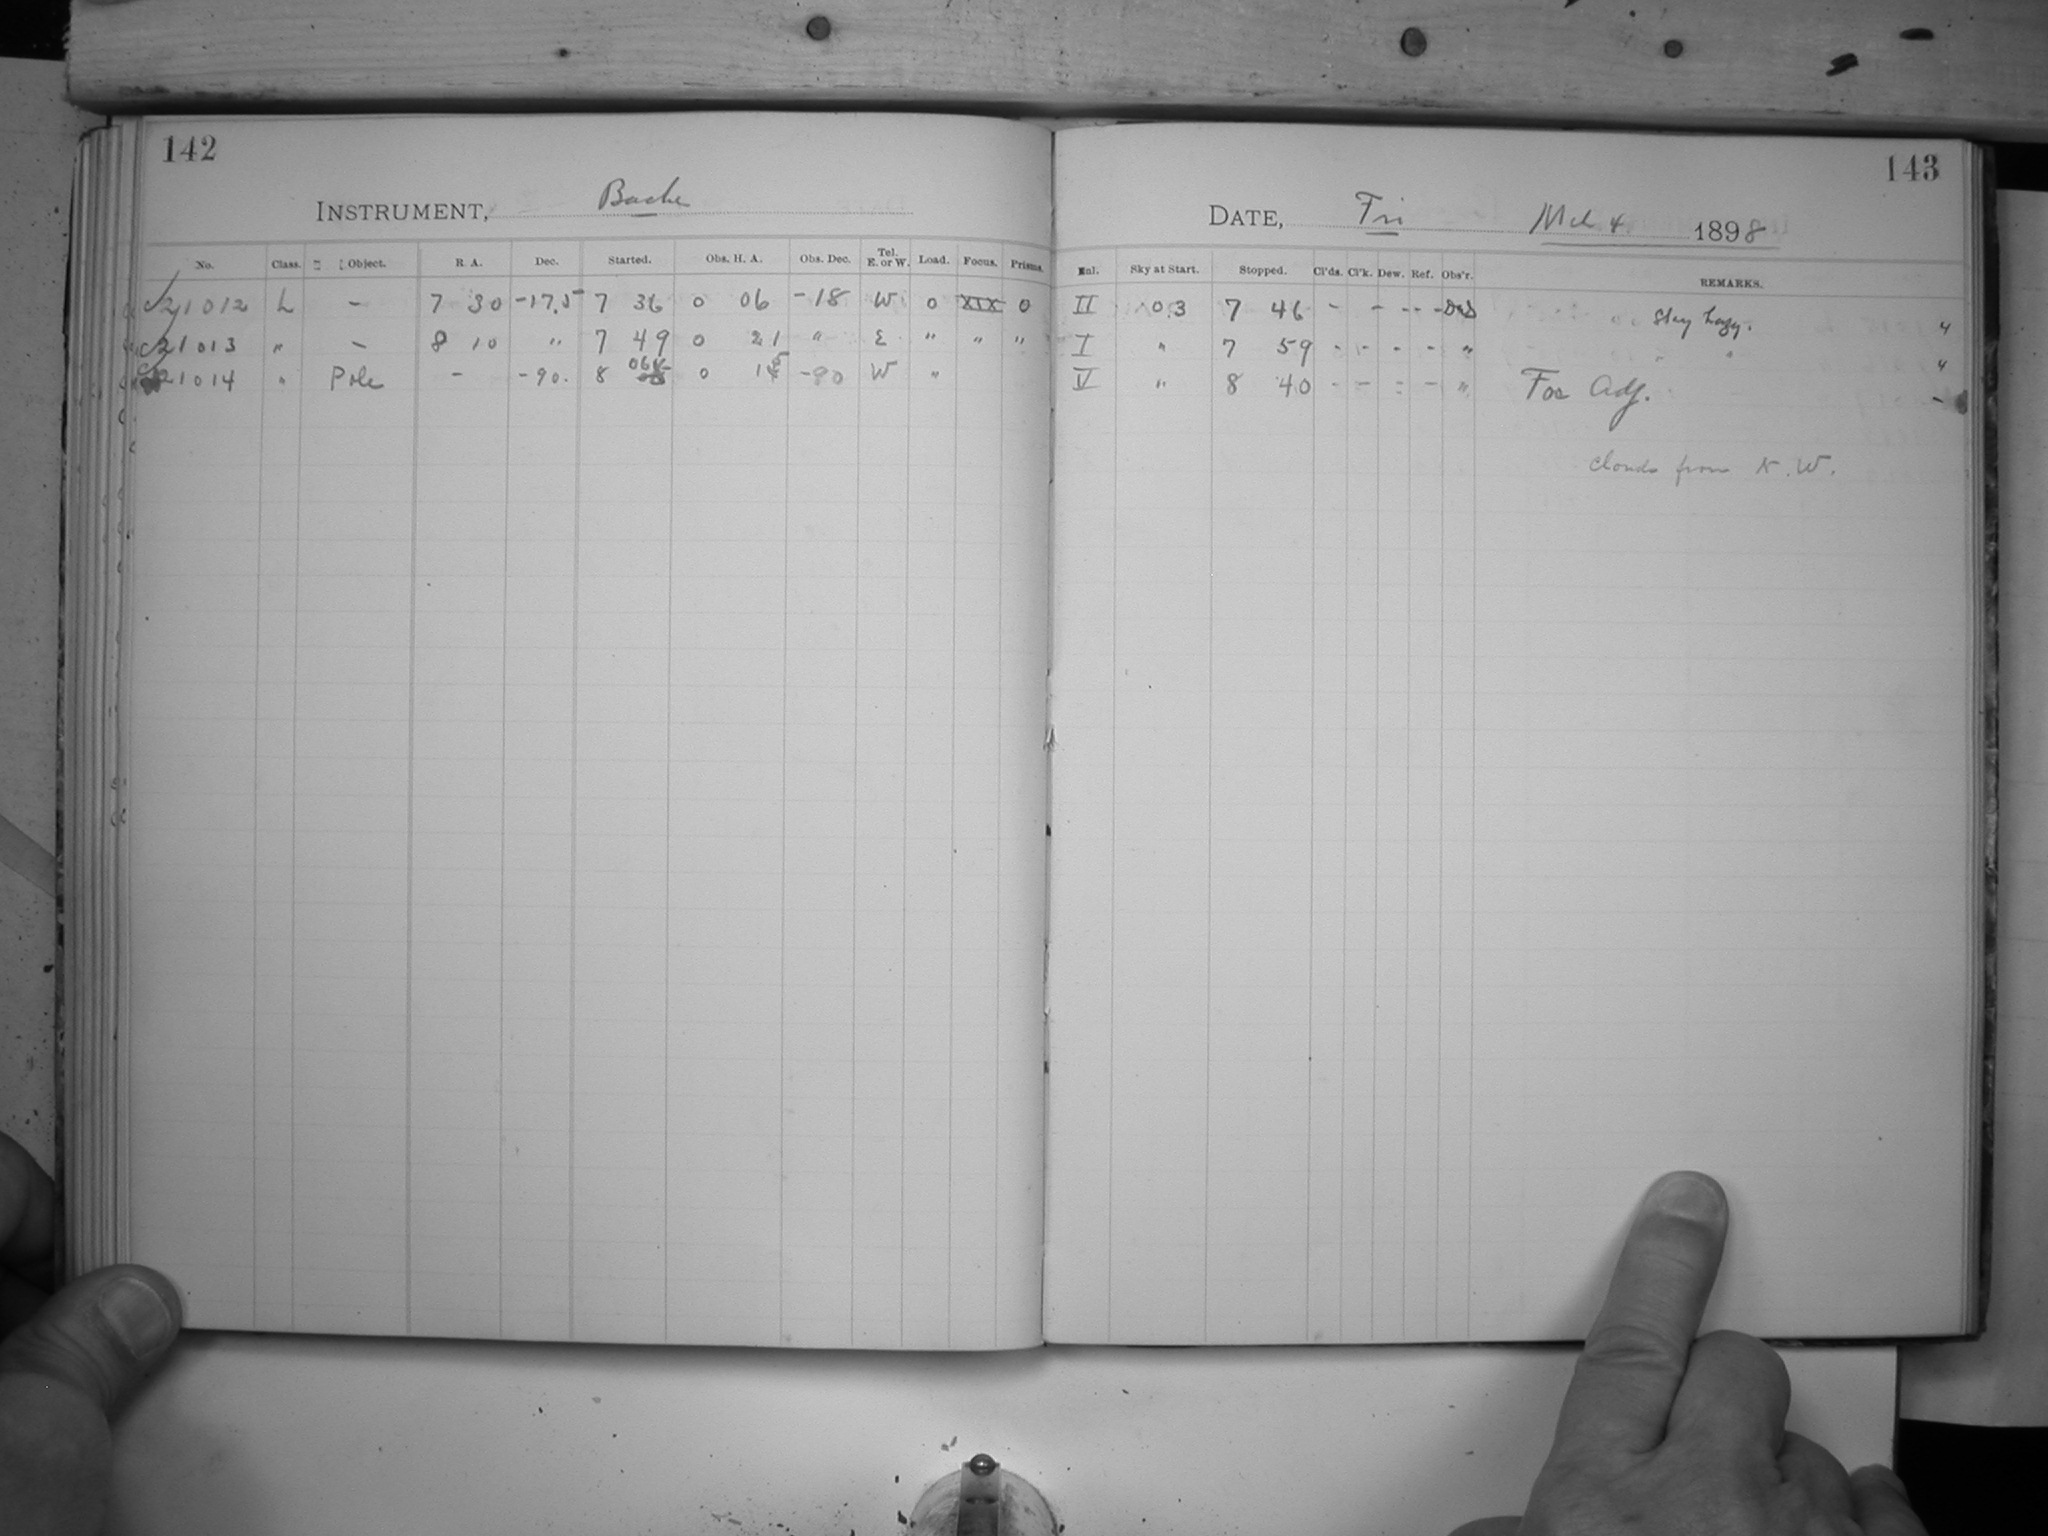 142
INSTRUMENT, Bache
No. Class. Object. R. A. Dec. Started. Obs. H. A. Obs. Dec. Tel. E. or W. Load. Focus. Prisms.
21012 L – 7 30 -17.5 7 36 0 06 -18 W 0 XIX 0
21013 " – 8 10 " 7 49 0 21 " E " " "
21014 " Pole - -90. 8 0 -90 W "
143
DATE, Fri Mch 4 1898
Enl. Sky at Start. Stopped. Cl'ds. Cl'k. Dew. Ref. Obs'r. REMARKS.
II 0.3 7 46 - - - - Sky hazy. "
I " 7 59 - - - - " " " "
V " 8 40 - - - - " For Adj. -
clouds from N.W.